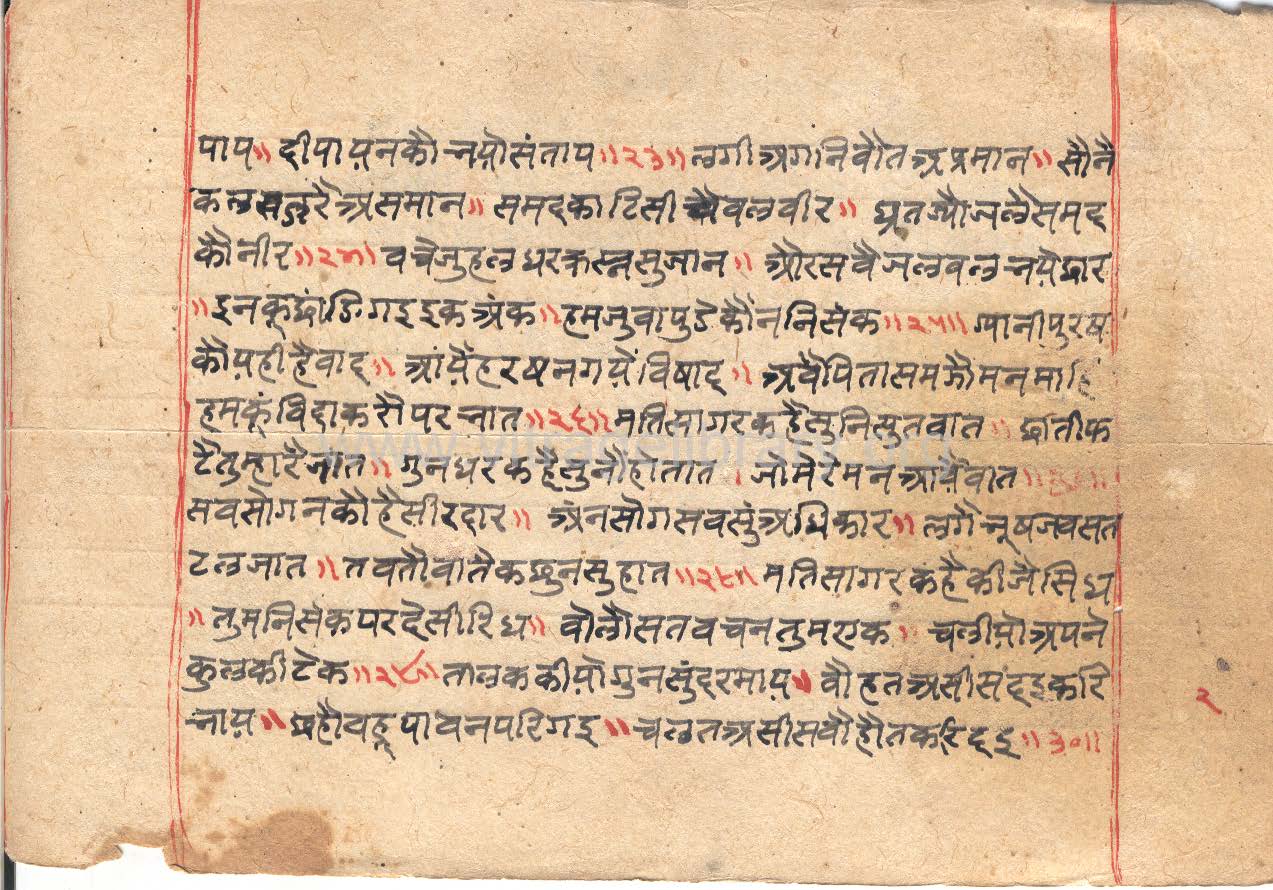 पाप॥ दीपायनकौ भयोसंताप॥२३॥ लगीअगनिवौतअप्रमान॥ सौनै
कलसजुरैअसमान॥ समदकाटिसीचौवलवीर॥ घ्रतज्यौजलैसमद
कौनीर॥२४॥ वचैजुहलधरक्रस्नसुजान॥ औरसवैजलवलभयेछार
॥इनकूछांडिगइइकअंक॥हमजुवापुडेकौंननिसंक॥२५॥ ग्यानीपुरष
कौयहीहैवाद॥ आंयैहरषनगयैंविषाद॥ अवैपितासमझौमनमाहि
हमकूंविदाकरौपरभात॥२६॥मतिसागरकहैसुनिसुतवात॥ छातीफ
टैतुम्हारैजात॥ गुनधरकहैसुनौहोतात। जोमेरेमनआयैवात
सवसोगनकौहैसीरदार॥ अंनसोगसवसुंअधिकार॥ लगैभूषजवसत
टलजात॥तवतौवातैकछुनसुहात॥२८॥मतिसागरकहैकीजैसिध
॥तुमनिसंकपरदेसीरिध॥ वोलौसतवचनतुमएक॥ चलीयोअपने
कुलकीटेक॥२९॥तालककीयोगुनसुंदरमाय॥वौहतअसीसंदइकरि
भाय॥ यहौवडूपावनपरिगइ॥चलतअसीसवौहौतकरिदइ॥३०॥
२
www.vitragelibrary.org